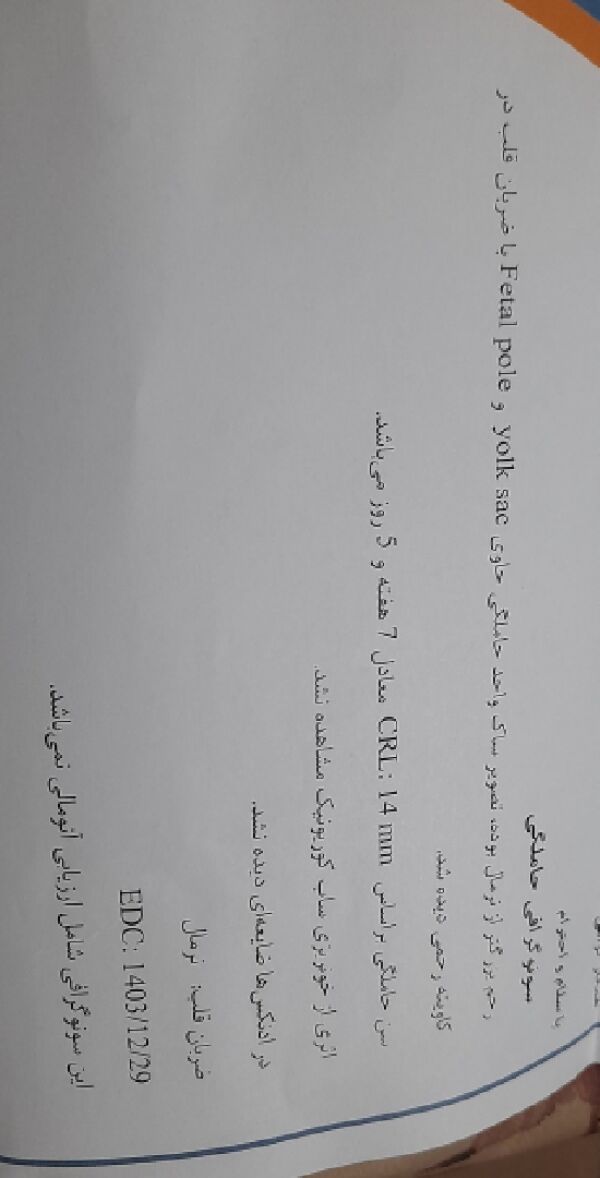 با سلام و احترام
سونوگرافی حاملگی
رحم بزرگتر از نرمال بوده، تصویر ساک واحد حاملگی حاوی yolk sac و Fetal pole با ضربان قلب در
کاویته رحمی دیده شد.
سن حاملگی براساس CRL: 14 mm معادل 7 هفته و 5 روز می‌باشد.
اثری از خونریزی ساب کوریونیک مشاهده نشد.
در ادنکس‌ها ضایعه‌ای دیده نشد.
ضربان قلب: نرمال
EDC: 1403/12/29
این سونوگرافی شامل ارزیابی آنومالی نمی‌باشد.